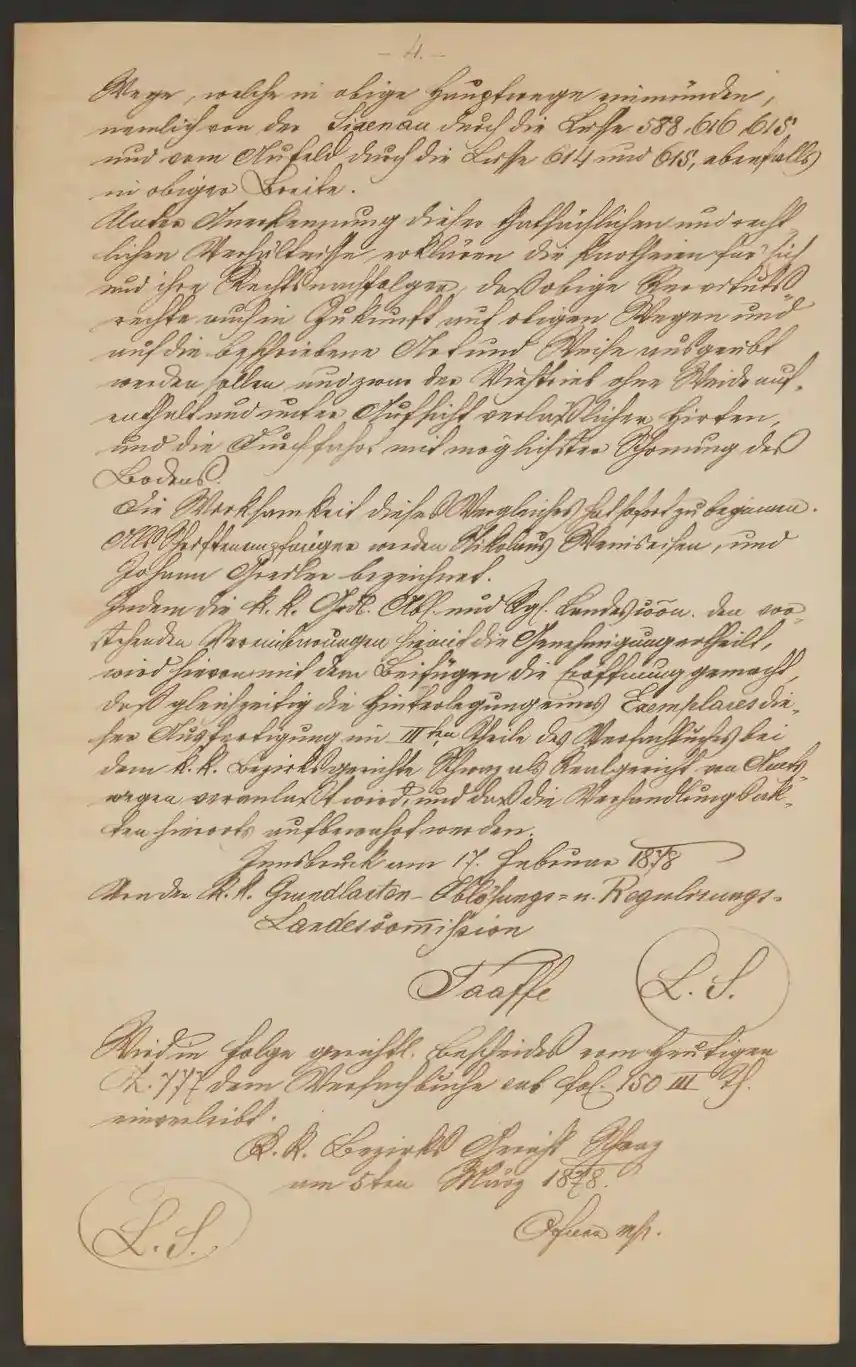 – 4. –
Wege, welche in obige Hauptwege einmünden,
nemlich von der Sixenau durch die Lusse 588, 616, 615
und vom Aufeld durch die Lusse 614 und 615, ebenfalls
in obiger Breite.
Unter Anerkennung dieser thatsächlichen und recht¬
lichen Verhältnisse, erklären die Partheien für sich
und ihre Rechtsnachfolger, daß obige Servituts
rechte auch in Zukunft auf obigen Wegen und
auf die beschriebene Art und Weise ausgeübt
werden sollen, und zwar der Viehtrieb ohne Weideauf¬
enthalt und unter Aufsicht verläßlicher Hirten,
und die Durchfahrt mit möglichster Schonung des
Bodens.
Die Wirksamkeit dieses Vergleiches hat sofort zu beginnen.
Als Schriftenempfänger werden Nikolaus und
Johann Gredler bezeichnet.
Indem die k. k. Gdl. Abl. und Rgl. Landescõn. den vor¬
stehenden Vereinbarungen hiemit die Genehmigung ertheilt,
wird hievon mit dem Beifügen die Eröffnung gemacht,
daß gleichzeitig die Hinterlegung eines Exemplares die¬
ser Ausfertigung im III ten Theile des Verfachbuches bei
dem k. k. Bezirksgerichte Schwaz als Realgericht von Amts
wegen veranlaßt wird, und daß die Verhandlungsak¬
ten hierorts aufbewahrt werden.
Innsbruck am 17. Februar 1878
Von der k. k. Grundlasten- Ablösungs= u. Regulirungs-
Landescom̅ission
Taaffe L. S.
Wird in Folge gerichtl. Bescheides vom Heutigen
Z. 777 dem Verfachbuche sub fol. 150 III Th.
einverleibt.
K. k. Bezirks Gericht Schwaz
am 5ten März 1878.
L. S.
m/p.